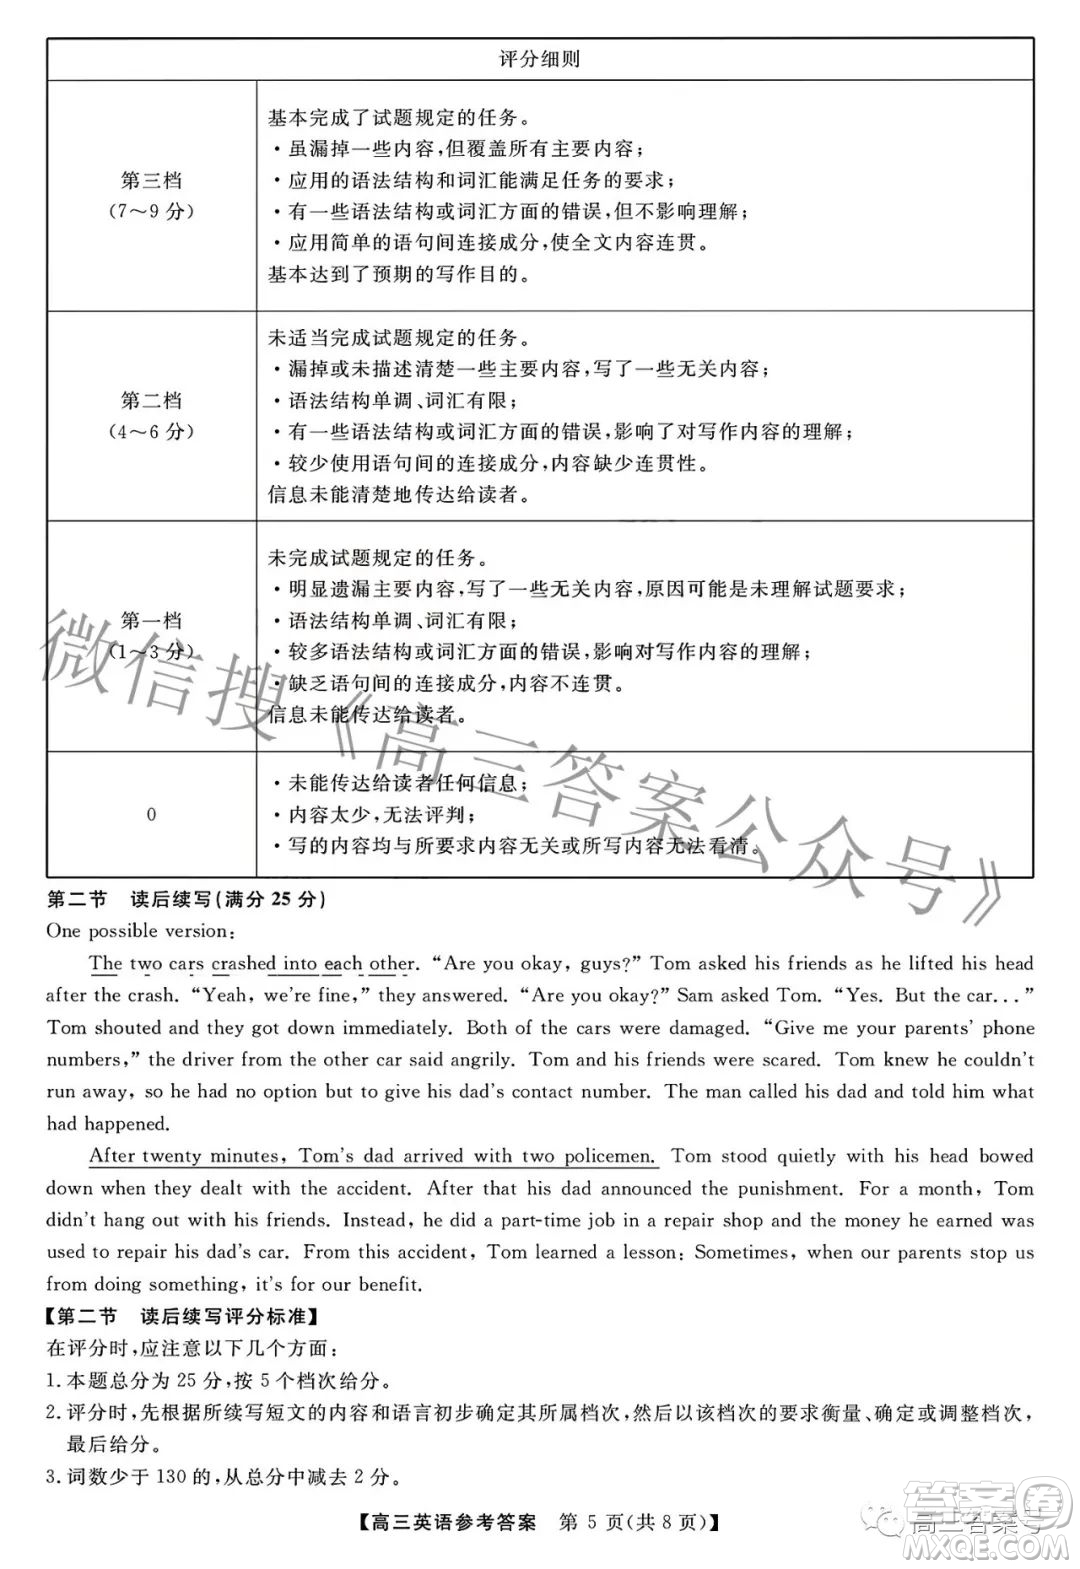 评分细则
第三档
(7～9 分)
基本完成了试题规定的任务。
·虽漏掉一些内容,但覆盖所有主要内容;
·应用的语法结构和词汇能满足任务的要求;
·有一些语法结构或词汇方面的错误,但不影响理解;
·应用简单的语句间连接成分,使全文内容连贯。
基本达到了预期的写作目的。
第二档
(4～6 分)
未适当完成试题规定的任务。
·漏掉或未描述清楚一些主要内容,写了一些无关内容;
·语法结构单调、词汇有限;
·有一些语法结构或词汇方面的错误,影响了对写作内容的理解;
·较少使用语句间的连接成分,内容缺少连贯性。
信息未能清楚地传达给读者。
第一档
(1～3 分)
未完成试题规定的任务。
·明显遗漏主要内容,写了一些无关内容,原因可能是未理解试题要求;
·语法结构单调、词汇有限;
·较多语法结构或词汇方面的错误,影响对写作内容的理解;
·缺乏语句间的连接成分,内容不连贯。
信息未能传达给读者。
0
·未能传达给读者任何信息;
·内容太少,无法评判;
·写的内容均与所要求内容无关或所写内容无法看清。
微信搜《高三答案公众号》
第二节　读后续写(满分 25 分)
One possible version:
The two cars crashed into each other. “Are you okay, guys?” Tom asked his friends as he lifted his head
after the crash. “Yeah, we're fine,” they answered. “Are you okay?” Sam asked Tom. “Yes. But the car...”
Tom shouted and they got down immediately. Both of the cars were damaged. “Give me your parents' phone
numbers,” the driver from the other car said angrily. Tom and his friends were scared. Tom knew he couldn't
run away, so he had no option but to give his dad's contact number. The man called his dad and told him what
had happened.
After twenty minutes, Tom's dad arrived with two policemen. Tom stood quietly with his head bowed
down when they dealt with the accident. After that his dad announced the punishment. For a month, Tom
didn't hang out with his friends. Instead, he did a part-time job in a repair shop and the money he earned was
used to repair his dad's car. From this accident, Tom learned a lesson: Sometimes, when our parents stop us
from doing something, it's for our benefit.
【第二节　读后续写评分标准】
在评分时,应注意以下几个方面:
1. 本题总分为 25 分,按 5 个档次给分。
2. 评分时,先根据所续写短文的内容和语言初步确定其所属档次,然后以该档次的要求衡量、确定或调整档次,
最后给分。
3. 词数少于 130 的,从总分中减去 2 分。
【高三英语参考答案　第 5 页(共 8 页)】
高三答案号
答案圈
MXQE.COM